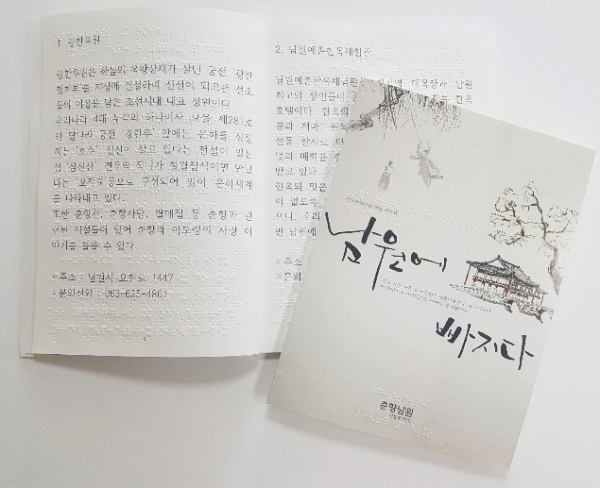 1. 광한루원
광한루원은 하늘의 옥황상제가 살던 궁전 '광한
청허부'를 지상에 건설하여 신선이 되고픈 선조
들의 이상을 담은 조선시대 대표 정원이다.
우리나라 4대 누각의 하나이자 보물 제281호
인 달나라 궁전 '광한루' 앞에는 은하를 상징
하는 '호수', 신선이 살고 있다는 전설이 있는
섬 '삼신산', 견우와 직녀가 칠월칠석이면 만난
다는 '오작교' 등으로 구성되어 있어 은하세계
를 나타내고 있다.
또한 춘향관, 춘향사당, 월매집 등 춘향과 관
련된 시설들이 있어 춘향과 이도령의 사랑 이
야기를 들을 수 있다.
주소 : 남원시 요천로 1447
문의전화 : 063-625-4861
2. 남원예촌한옥체험관
남원예촌한옥체험관은
대목장과 남원
최고의 장인들이
한옥
호텔이다. 한옥의
전통 방식으로
멋과 매력을
받고 있다.
한옥의 멋은
이 없도록
이니, 우리
면 남원예
주소
문의
남원에
빠지다
춘향남원